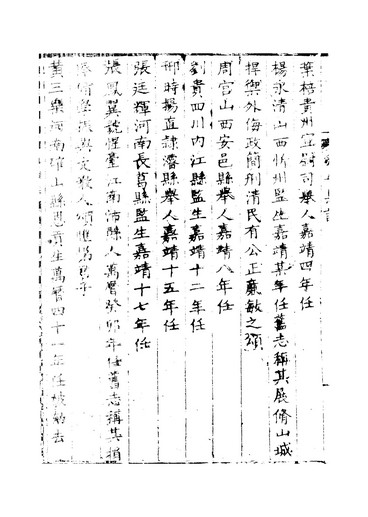 葉梧貴州宣慰司舉人嘉靖四年任
楊永清山西忻州監生嘉靖某年任舊志稱其展脩山城
捍禦外侮政簡刑清民有公正廉敏之頌
周宫山西安邑縣舉人嘉靖八年任
劉貴四川内江縣監生嘉靖十二年任
邢時揚直隷濬縣舉人嘉靖十五年任
張廷輝河南長葛縣監生嘉靖十七年任
張鳳翼號惺臺江南沛縣人萬曆癸卯年任舊志稱其捐
學 文教人頌
黃三樂河南確山縣恩貢生萬曆四十一年任被劾去